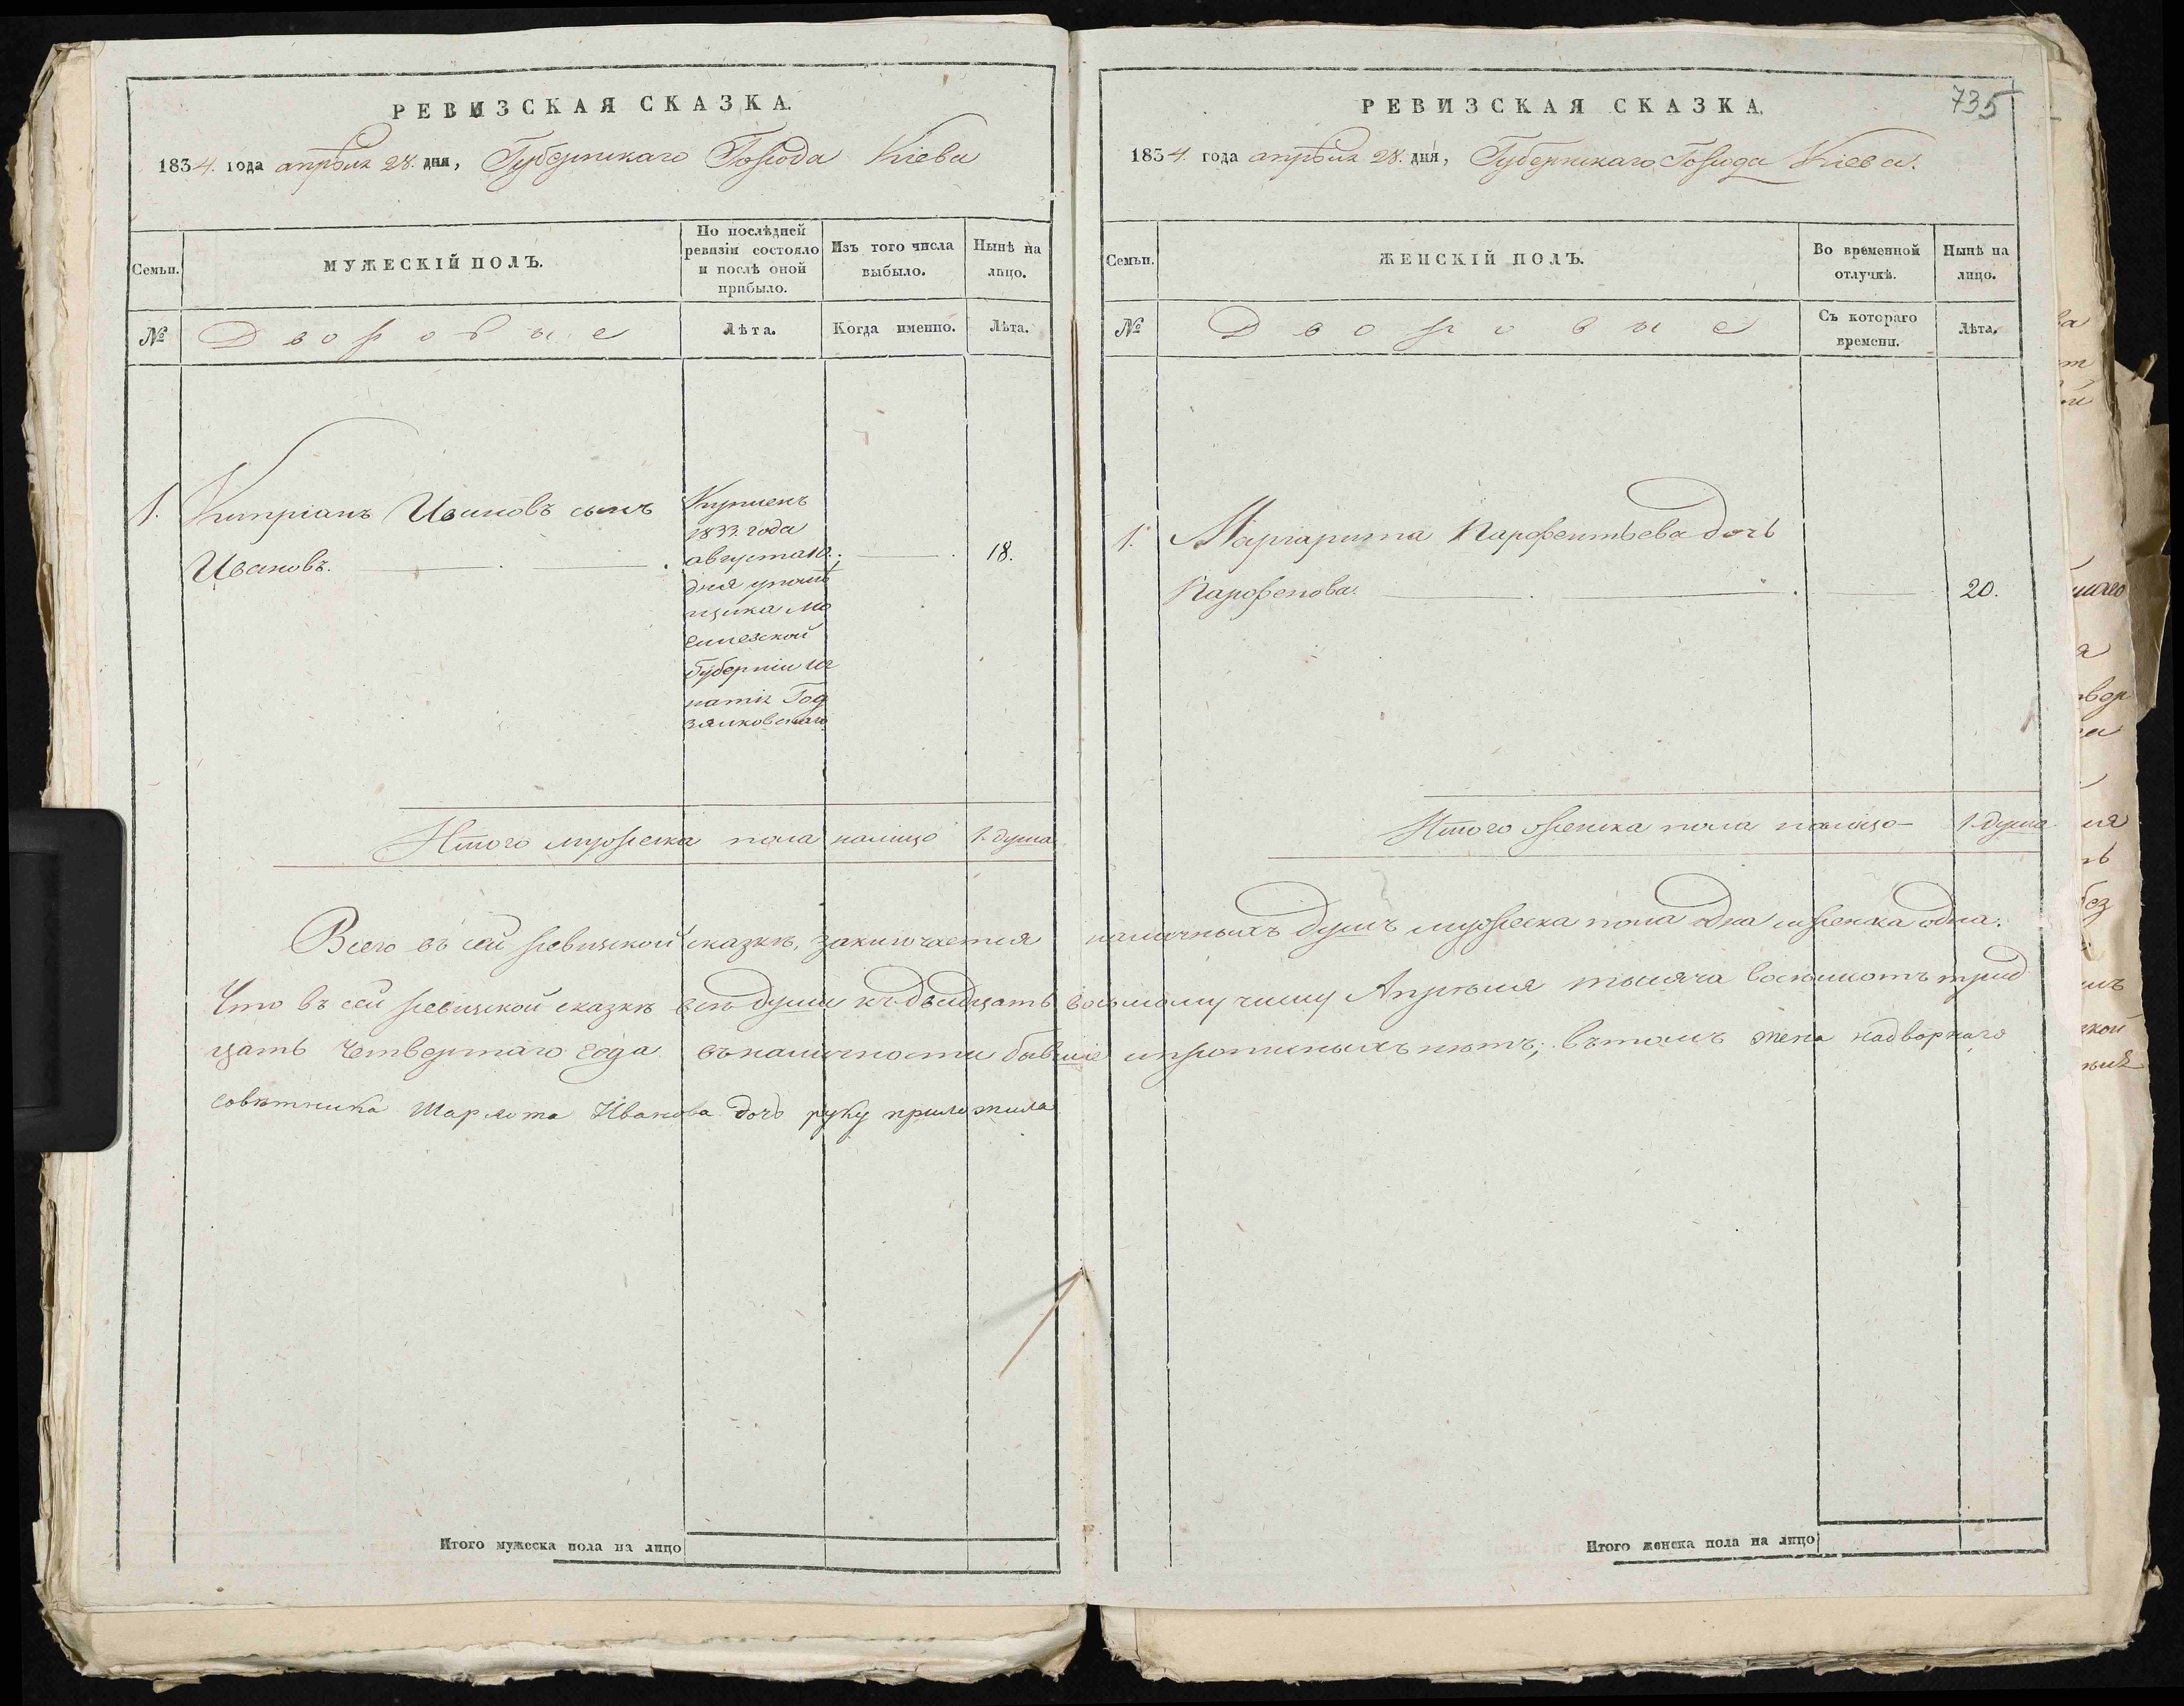 РЕВИЗСКАЯ СКАЗКА.
1834. года апрѣля 28. дня, Губернскаго Города Кіева
Семьи.
МУЖЕСКІЙ ПОЛЪ.
По послѣдней ревизіи состояло и послѣ оной прибыло.
Изъ того числа выбыло.
Нынѣ на лицо.
№
Дворовые
Лѣта.
Когда именно.
Лѣта.
1. Кипріанъ Ивановъ сынъ
Ивановъ.
Купленъ
1833 года
августа 10
дня у
щика Мо
гилевской
Губерніи Иг
натія Год
зялковскаго
18.
Итого мужеска пола налицо 1. душа
РЕВИЗСКАЯ СКАЗКА.
735
1834. года апрѣля 28. дня, Губернскаго Города Кіева.
Семьи.
ЖЕНСКІЙ ПОЛЪ.
Во временной отлучкѣ.
Нынѣ на лицо.
№
Дворовые
Съ котораго времени.
Лѣта.
1. Маргарита Парфентьева дочь
Парфенова.
20.
Итого женска пола налицо 1 душа
Всего въ сей ревизской сказкѣ, заключается наличныхъ душъ мужеска пола одна женска одна.
Что въ сей ревизской сказкѣ всѣ души къ двадцать восьмому числу Апрѣля тысяча восемсотъ трид
цать четвертаго года въ наличности бывшіе и прописныхъ нѣтъ; въ томъ жена надворнаго
совѣтника Шарлота Иванова дочь руку приложила
Итого мужеска пола на лицо
Итого женска пола на лицо